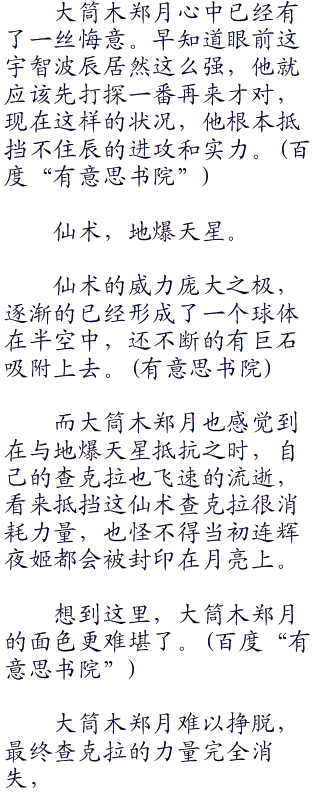 大筒木郑月心中已经有
了一丝悔意。早知道眼前这
宇智波辰居然这么强，他就
应该先打探一番再来才对，
现在这样的状况，他根本抵
挡不住辰的进攻和实力。(百
度“有意思书院”)
仙术，地爆天星。
仙术的威力庞大之极，
逐渐的已经形成了一个球体
在半空中，还不断的有巨石
吸附上去。(有意思书院)
而大筒木郑月也感觉到
在与地爆天星抵抗之时，自
己的查克拉也飞速的流逝，
看来抵挡这仙术查克拉很消
耗力量，也怪不得当初连辉
夜姬都会被封印在月亮上。
想到这里，大筒木郑月
的面色更难堪了。(百度“有
意思书院”)
大筒木郑月难以挣脱，
最终查克拉的力量完全消
失，